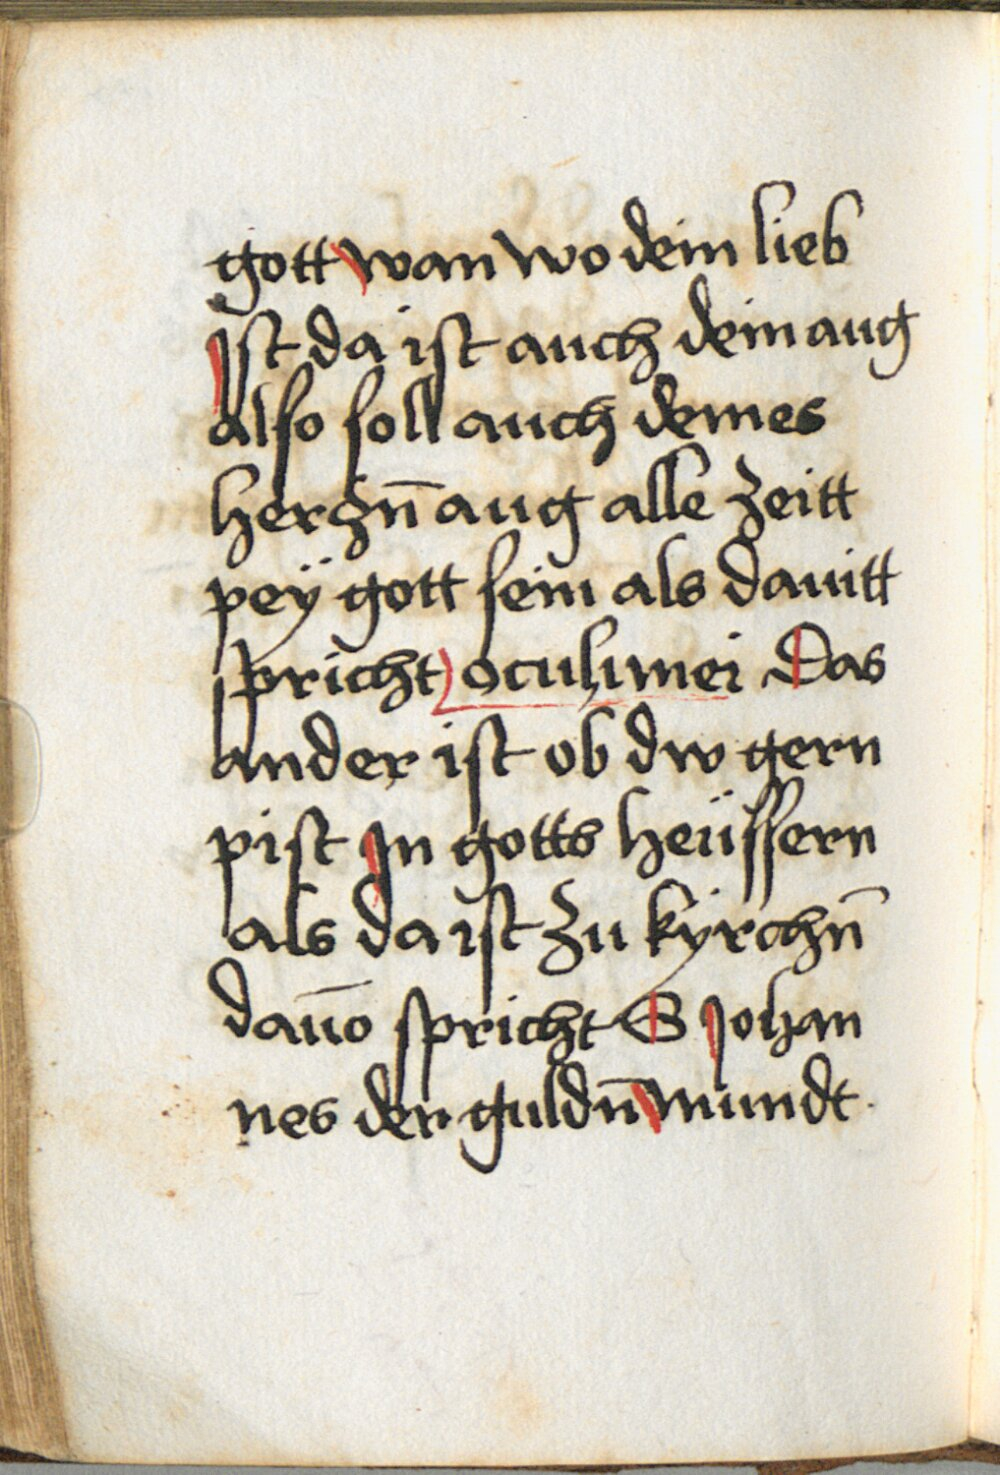 gott wan wo dein lieb
Ist da ist auch dein aug
also soll auch deines
herczn̄ aug alle zeitt
peÿ gott sein als dauitt
spricht oculi mei Das
ander ist ob dw gern
pist In gotts heüssern
als da ist zu kÿrchn̄
dauō spricht S Johan
nes der guldn̄ mundt.